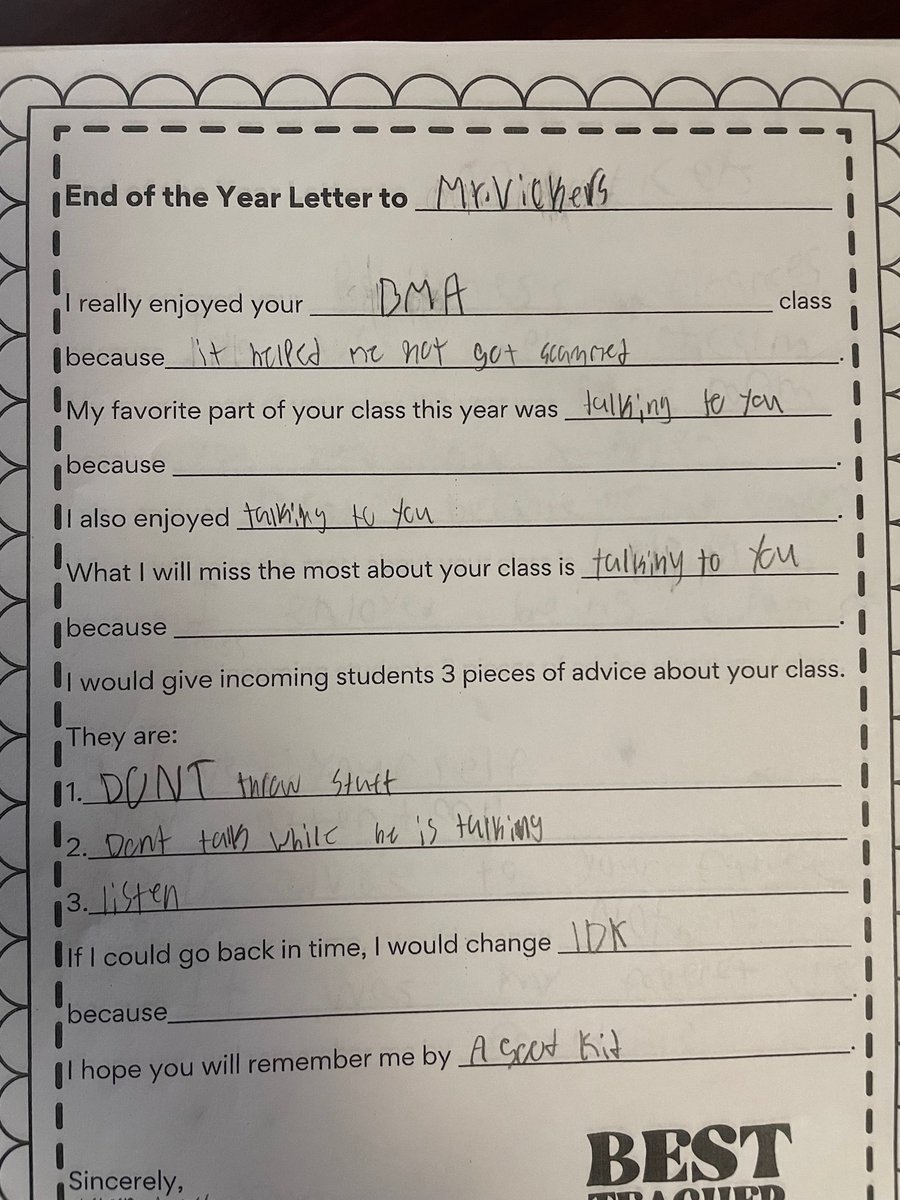 End of the Year Letter to Mr. Vickers
I really enjoyed your DMA class
because it helped me not got scammed.
My favorite part of your class this year was talking to you
because .
I also enjoyed talking to you.
What I will miss the most about your class is talking to you
because .
I would give incoming students 3 pieces of advice about your class.
They are:
1. DONT throw stuff
2. Dont talk while he is talking
3. listen
If I could go back in time, I would change IDK
because .
I hope you will remember me by A Good Kid.
BEST
Sincerely,
TEACHER